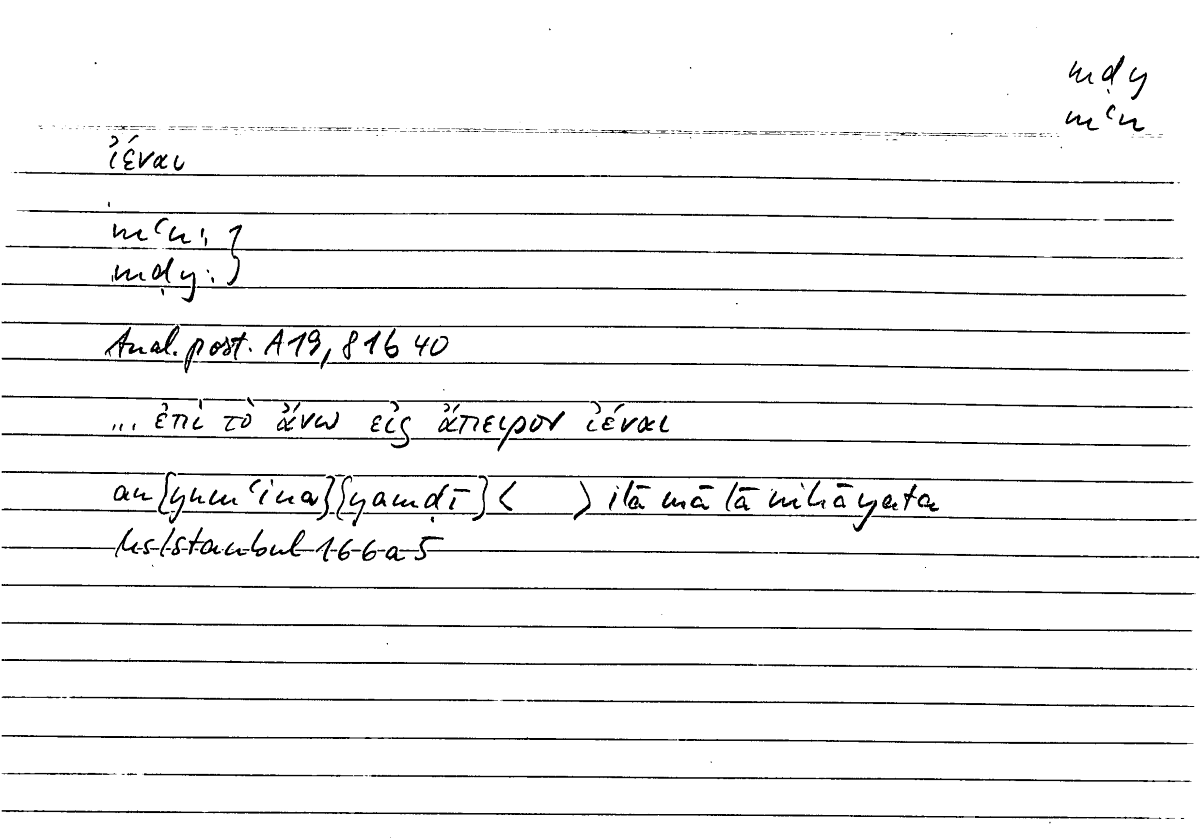 mḍy
mʿn
ἰέναι
mʿn: }
mḍy: }
Anal. post. A19, 81b40
... ἐπὶ τὸ ἄνω εἰς ἄπειρον ἰέναι
an {yumʿina}{yamḍī} < > ilā mā lā nihāyata
Hs Istanbul 166a5